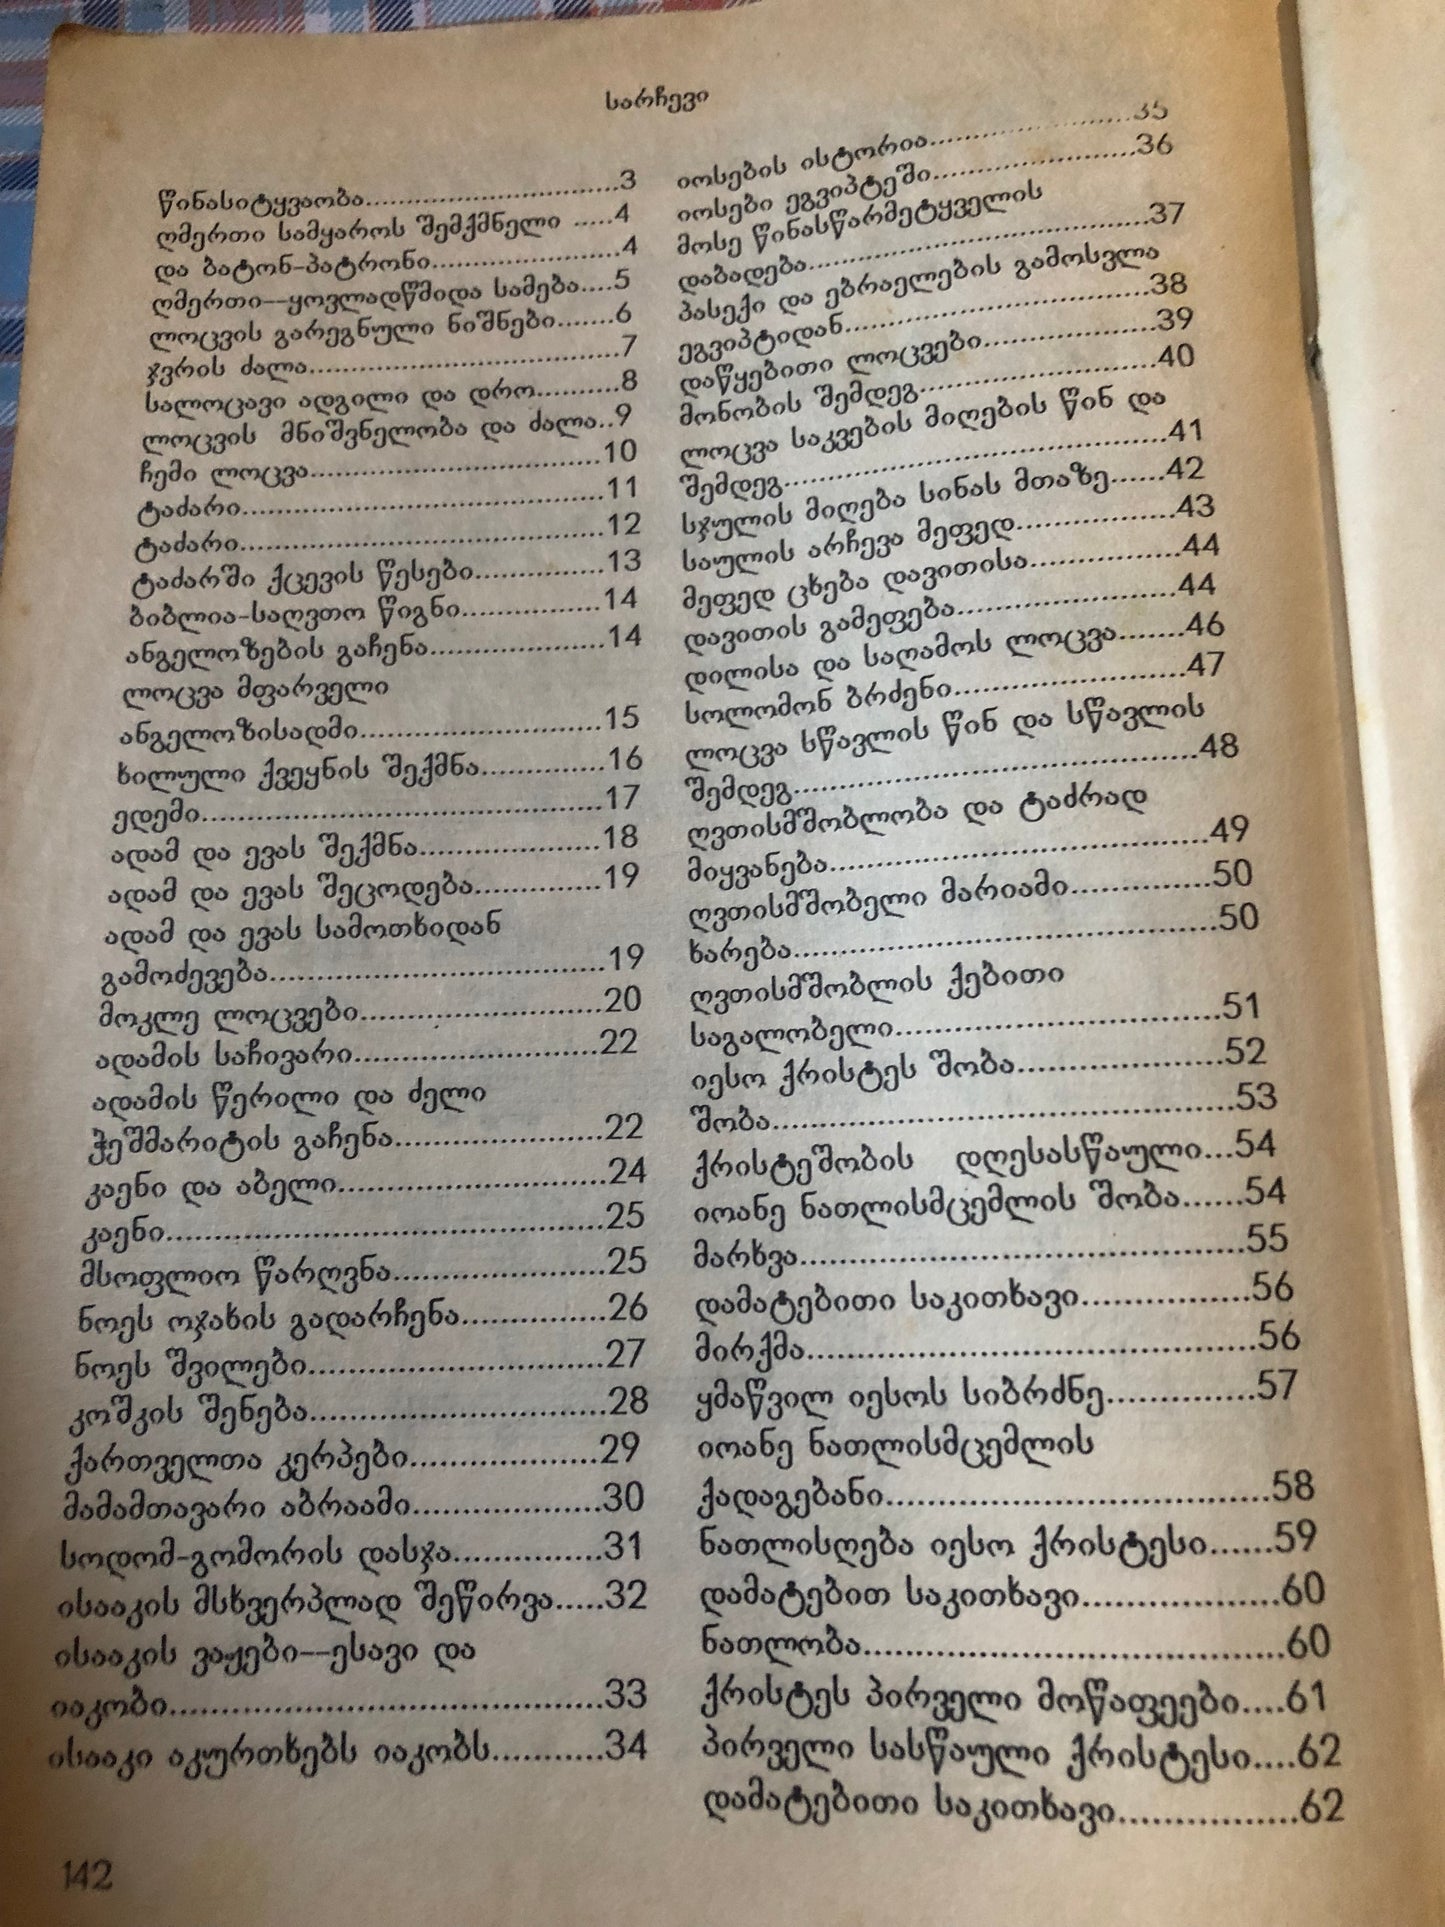 სარჩევი
წინასიტყვაობა..............................3
ღმერთი სამყაროს შემქმნელი .....4
და ბატონ-პატრონი......................4
ღმერთი—ყოვლადწმიდა სამება....5
ლოცვის გარეგნული ნიშნები.......6
ჯვრის ძალა....................................7
სალოცავი ადგილი და დრო..........8
ლოცვის მნიშვნელობა და ძალა..9
ჩემი ლოცვა..................................10
ტაძარი..........................................11
ტაძარი..........................................12
ტაძარში ქცევის წესები...............13
ბიბლია-საღვთო წიგნი................14
ანგელოზების გაჩენა....................14
ლოცვა მფარველი
ანგელოზისადმი............................15
ხილული ქვეყნის შექმნა..............16
ედემი...............................................17
ადამ და ევას შექმნა.....................18
ადამ და ევას შეცოდება...............19
ადამ და ევას სამოთხიდან
გამოძევება.......................................19
მოკლე ლოცვები............................20
ადამის საჩივარი............................22
ადამის წერილი და ძელი
ჭეშმარიტის გაჩენა........................22
კაენი და აბელი...............................24
კაენი...................................................25
მსოფლიო წარღვნა.........................25
ნოეს ოჯახის გადარჩენა.................26
ნოეს შვილები..................................27
კოშკის შენება..................................28
ქართველთა კერპები......................29
მამამთავარი აბრაამი......................30
სოდომ-გომორის დასჯა.................31
ისააკის მსხვერპლად შეწირვა.....32
ისააკის ვაჟები—ესავი და
იაკობი..................................................33
ისააკი აკურთხებს იაკობს............34
იოსების ისტორია........................35
იოსები ეგვიპტეში........................36
მოსე წინასწარმეტყველის
დაბადება........................................37
პასექი და ებრაელების გამოსვლა
ეგვიპტიდან....................................38
დაწყებითი ლოცვები....................39
მონობის შემდეგ............................40
ლოცვა საკვების მიღების წინ და
შემდეგ.............................................41
სჯულის მიღება სინას მთაზე......42
საულის არჩევა მეფედ..................43
მეფედ ცხება დავითისა.................44
დავითის გამეფება..........................44
დილისა და საღამოს ლოცვა.......46
სოლომონ ბრძენი...........................47
ლოცვა სწავლის წინ და სწავლის
შემდეგ................................................48
ღვთისმშობლობა და ტაძრად
მიყვანება............................................49
ღვთისმშობელი მარიამი................50
ხარება.................................................50
ღვთისმშობლის ქებითი
საგალობელი.....................................51
იესო ქრისტეს შობა........................52
შობა......................................................53
ქრისტეშობის დღესასწაული...54
იოანე ნათლისმცემლის შობა......54
მარხვა..................................................55
დამატებითი საკითხავი..................56
მირქმა..................................................56
ყმაწვილ იესოს სიბრძნე................57
იოანე ნათლისმცემლის
ქადაგებანი..........................................58
ნათლისღება იესო ქრისტესი......59
დამატებით საკითხავი.....................60
ნათლობა..............................................60
ქრისტეს პირველი მოწაფეები....61
პირველი სასწაული ქრისტესი....62
დამატებითი საკითხავი...................62
142